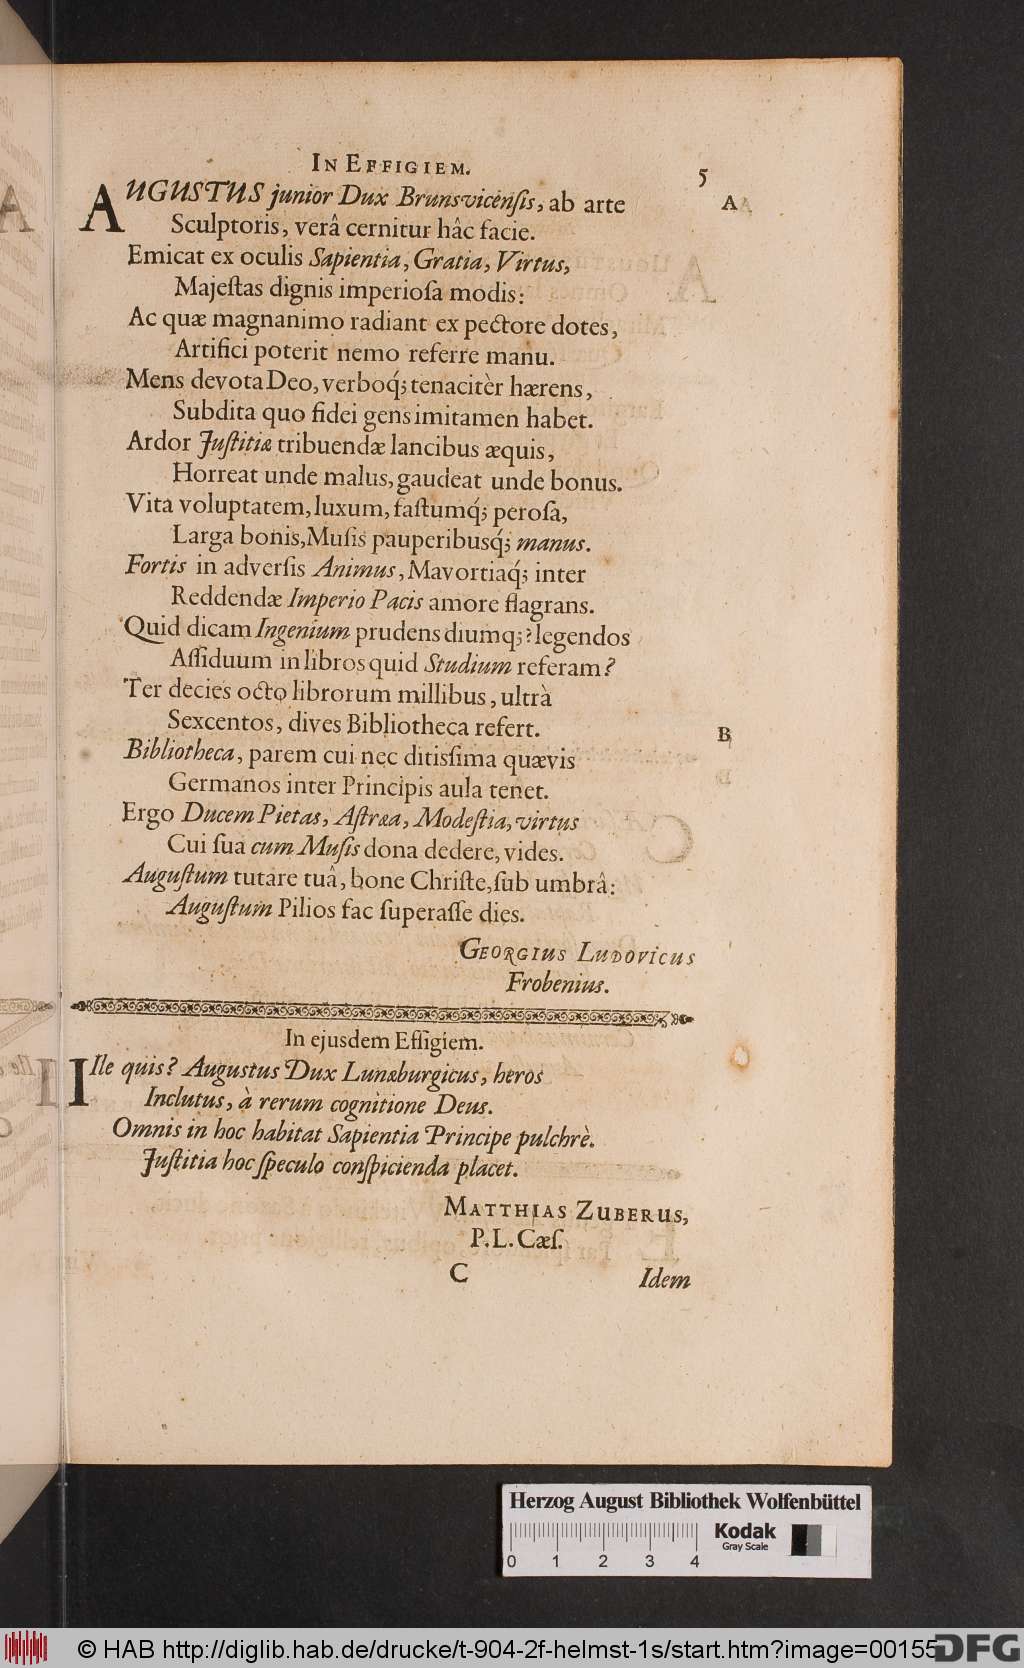 IN EFFIGIEM.
5
AUGUSTUS junior Dux Brunsvicenſis, ab arte
A
Sculptoris, verâ cernitur hâc facie.
Emicat ex oculis Sapientia, Gratia, Virtus,
Majeſtas dignis imperioſa modis:
Ac quæ magnanimo radiant ex pectore dotes,
Artifici poterit nemo referre manu.
Mens devota Deo, verboq́; tenacitèr hærens,
Subdita quo fidei gens imitamen habet.
Ardor Juſtitiæ tribuendæ lancibus æquis,
Horreat unde malus, gaudeat unde bonus.
Vita voluptatem, luxum, faſtumq́; peroſa,
Larga bonis, Muſis pauperibusq́; manus.
Fortis in adverſis Animus, Mavortiaq́; inter
Reddendæ Imperio Pacis amore flagrans.
Quid dicam Ingenium prudens diumq;? legendos
Aſſiduum in libros quid Studium referam?
Ter decies octo librorum millibus, ultrà
Sexcentos, dives Bibliotheca refert.
B
Bibliotheca, parem cui nec ditisſima quævis
Germanos inter Principis aula tenet.
Ergo Ducem Pietas, Aſtræa, Modeſtia, virtus
Cui ſua cum Muſis dona dedere, vides.
Auguſtum tutare tuâ, bone Chriſte, ſub umbrâ:
Auguſtum Pilios fac ſuperaſſe dies.
GEORGIUS LUDOVICUS
Frobenius.
In ejusdem Effigiem.
IIle quis? Augustus Dux Lunæburgicus, heros
Inclutus, à rerum cognitione Deus.
Omnis in hoc habitat Sapientia Principe pulchrè.
Juſtitia hoc ſpeculo conſpicienda placet.
MATTHIAS ZUBERUS,
P. L. Cæſ.
C
Idem
Herzog August Bibliothek Wolfenbüttel
Kodak
Gray Scale
0 1 2 3 4
© HAB http://diglib.hab.de/drucke/t-904-2f-helmst-1s/start.htm?image=00155
DFG